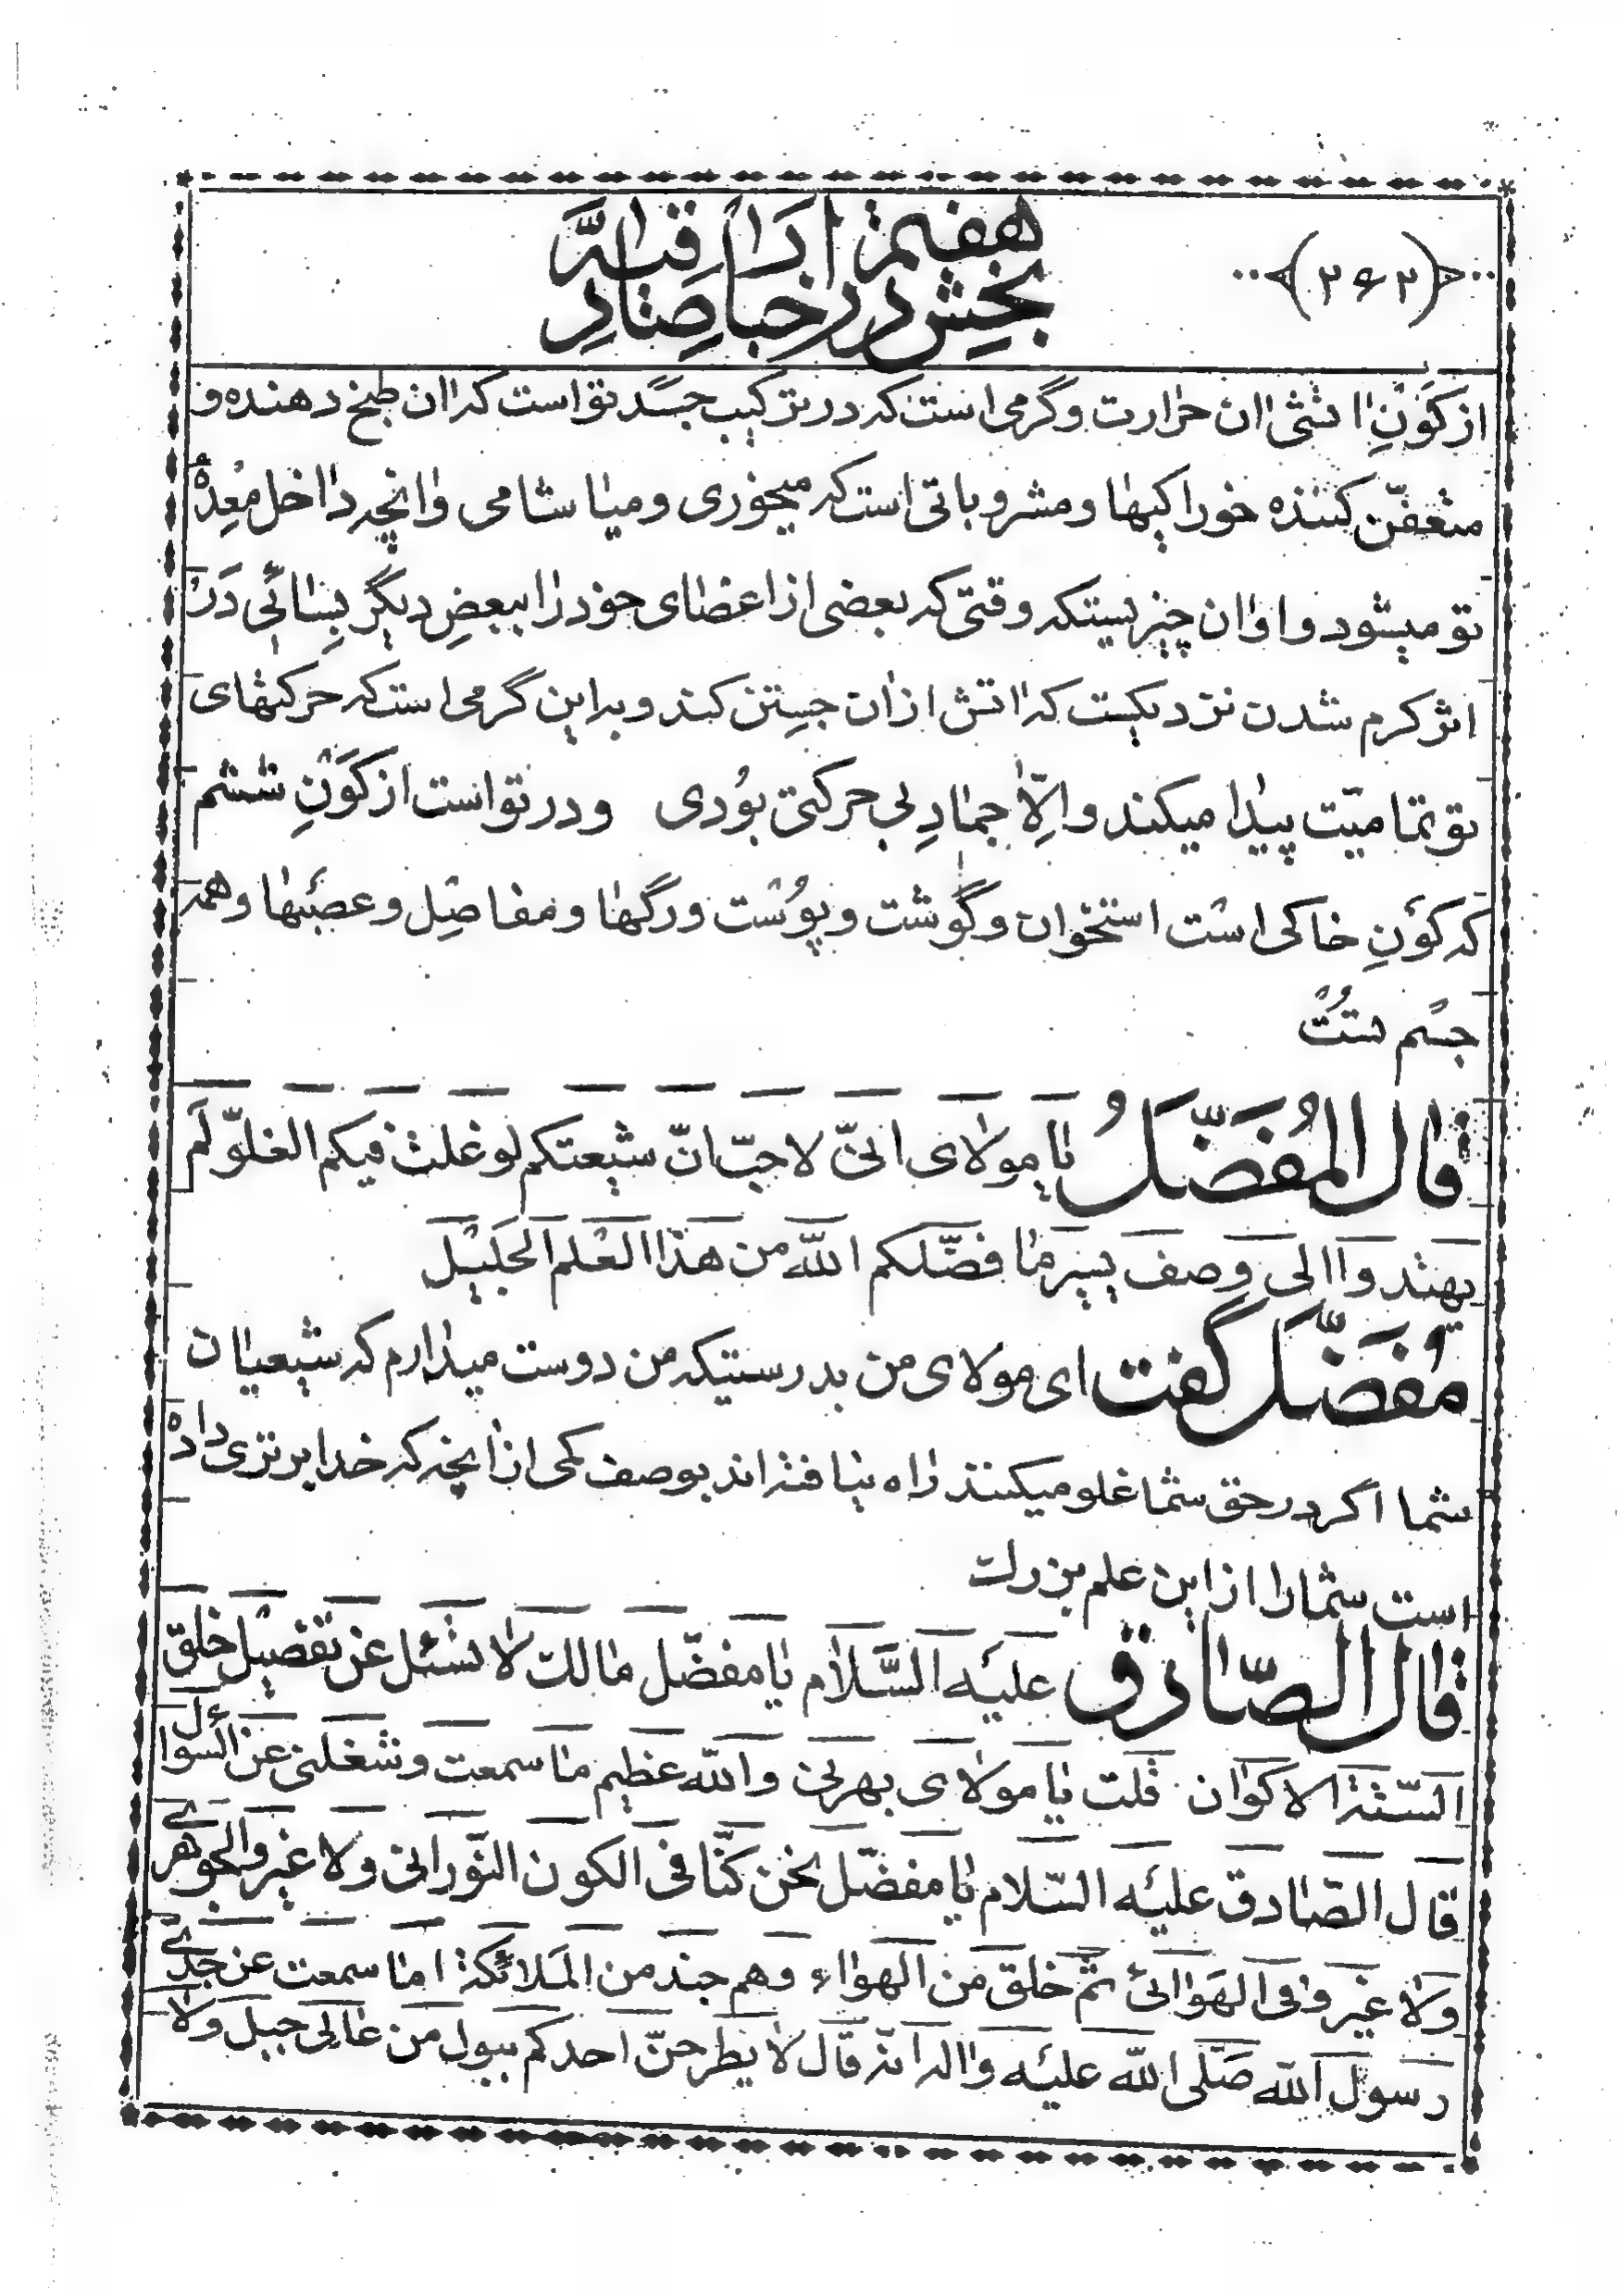 ﴿۲۶۲﴾
بخش هفتم در اخبار صادقیه
از کَوْنِ اتشی ان حرارت و گرمی است که در ترکیب جسَد تو است که ان طبخ دهنده و
متعفّن کننده خوراکیها و مشروباتی است که میخوری و میاشامی و انچه داخل مُعِدهٔ
تو میشود و او ان چیزیستکه وقتی که بعضی از اعضای خود را ببعضِ دیگر بِسٰائی دَر
اثر کرم شدن نزدیکیست که اتش از ان جِستن کند و به این گرمی است که حرکتهای
تو تمامیّت پیدا میکند و اِلّا جمٰادِ بی حرکتی بوُدی و در تو است از کَوْنِ ششم
که کوْنِ خاکی است استخوان و گوشت و پوُسْت و رگها و مفاصِل و عصَبها و همه
جسْم تُسْت
قال المُفَضَّلُ یا مولای انّی لاحبّ انّ شیعتکم لو غلت فیکم الغلوّ لَم
یهتد و االی وصف یسیر ما فضّلکم اللّه من هذا العْلم الجَلیْل
مُفَضّل گفت ای مولای من بدرستیکه من دوست میدارم که شیعیان
شما اگر در حق شما غلو میکنند راه نیافته اند بوصف کمی از انچه که خدا برتری داده
است شما را از این علم بزرک
قال الصّادق علیه السَّلام یا مفضّل مالک لا تسْئل عن تفضیْل خلق
السّتّة الاکوان قلت یا مولای بهرنی و اللّه عظیم ما سمعت و شغلنی عن السوال
قال الصّادق علیْه السّلام یا مفضّل نحن کنّا فی الکون النّورانی و لا غیر و الجوهری
و لا غیر و فی الهَوائی ثمّ خلق من الهواء و هم جند من المَلائکة اما سمعت عن جدّی
رسول اللّه صَلّی اللّه علیْه و اله انّه قال لا یطرحنّ احدکم ببول من عالی جبل و لا